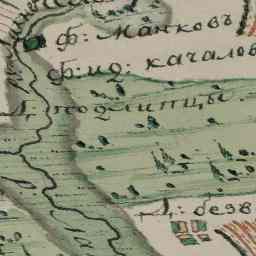 ф: Манковъ
ф: ид: качалов
Д: подлипцы.
Д: безв